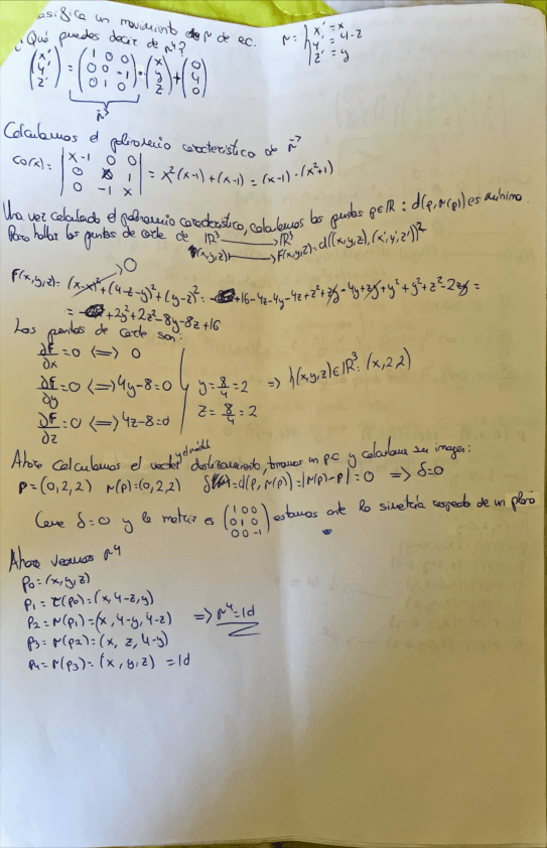 asifica un movimiento de r de ec. r = { x' = x
¿Qué puedes decir de r⁴? y' = 4-z
z' = y
(x' y' z') = (1 0 0 / 0 0 -1 / 0 1 0) · (x y z) + (0 4 0)
Calculamos el polinomio característico de r⃗
co(x) = | x-1 0 0 / 0 x 1 / 0 -1 x | = x²(x-1)+(x-1) = (x-1)·(x²+1)
Una vez calculado el polinomio característico, calculamos los puntos p∈ℝ : d(p, r(p)) es mínima.
Para hallar los puntos de corte de ℝ³ → ℝ³
(x,y,z) → F(x,y,z) = d((x,y,z), (x',y',z'))²
0
F(x,y,z) = (x-x)² + (4-z-y)² + (y-z)² = +16-4z-4y-4z+z²+zy-4y+zy+y²+y²+z²-2zy =
= +2y²+2z²-8y-8z+16
Los puntos de corte son:
∂F/∂x = 0 <=> 0
∂F/∂y = 0 <=> 4y-8=0 y = 8/4 = 2 => {(x,y,z)∈ℝ³: (x,2,2)
∂F/∂z = 0 <=> 4z-8=0 z = 8/4 = 2
Ahora calculamos el vector deslizamiento, tomamos un pc y calculamos su imagen:
p = (0,2,2) r(p) = (0,2,2) δ = d(p, r(p)) = |r(p)-p| = 0 => δ=0
Como δ=0 y la matriz es (1 0 0 / 0 1 0 / 0 0 -1) estamos ante la simetría respecto de un plano
Ahora veamos r⁴
p₀ = (x,y,z)
p₁ = r(p₀) = (x, 4-z, y)
p₂ = r(p₁) = (x, 4-y, 4-z) => r⁴ = Id
p₃ = r(p₂) = (x, z, 4-y)
p₄ = r(p₃) = (x, y, z) = Id